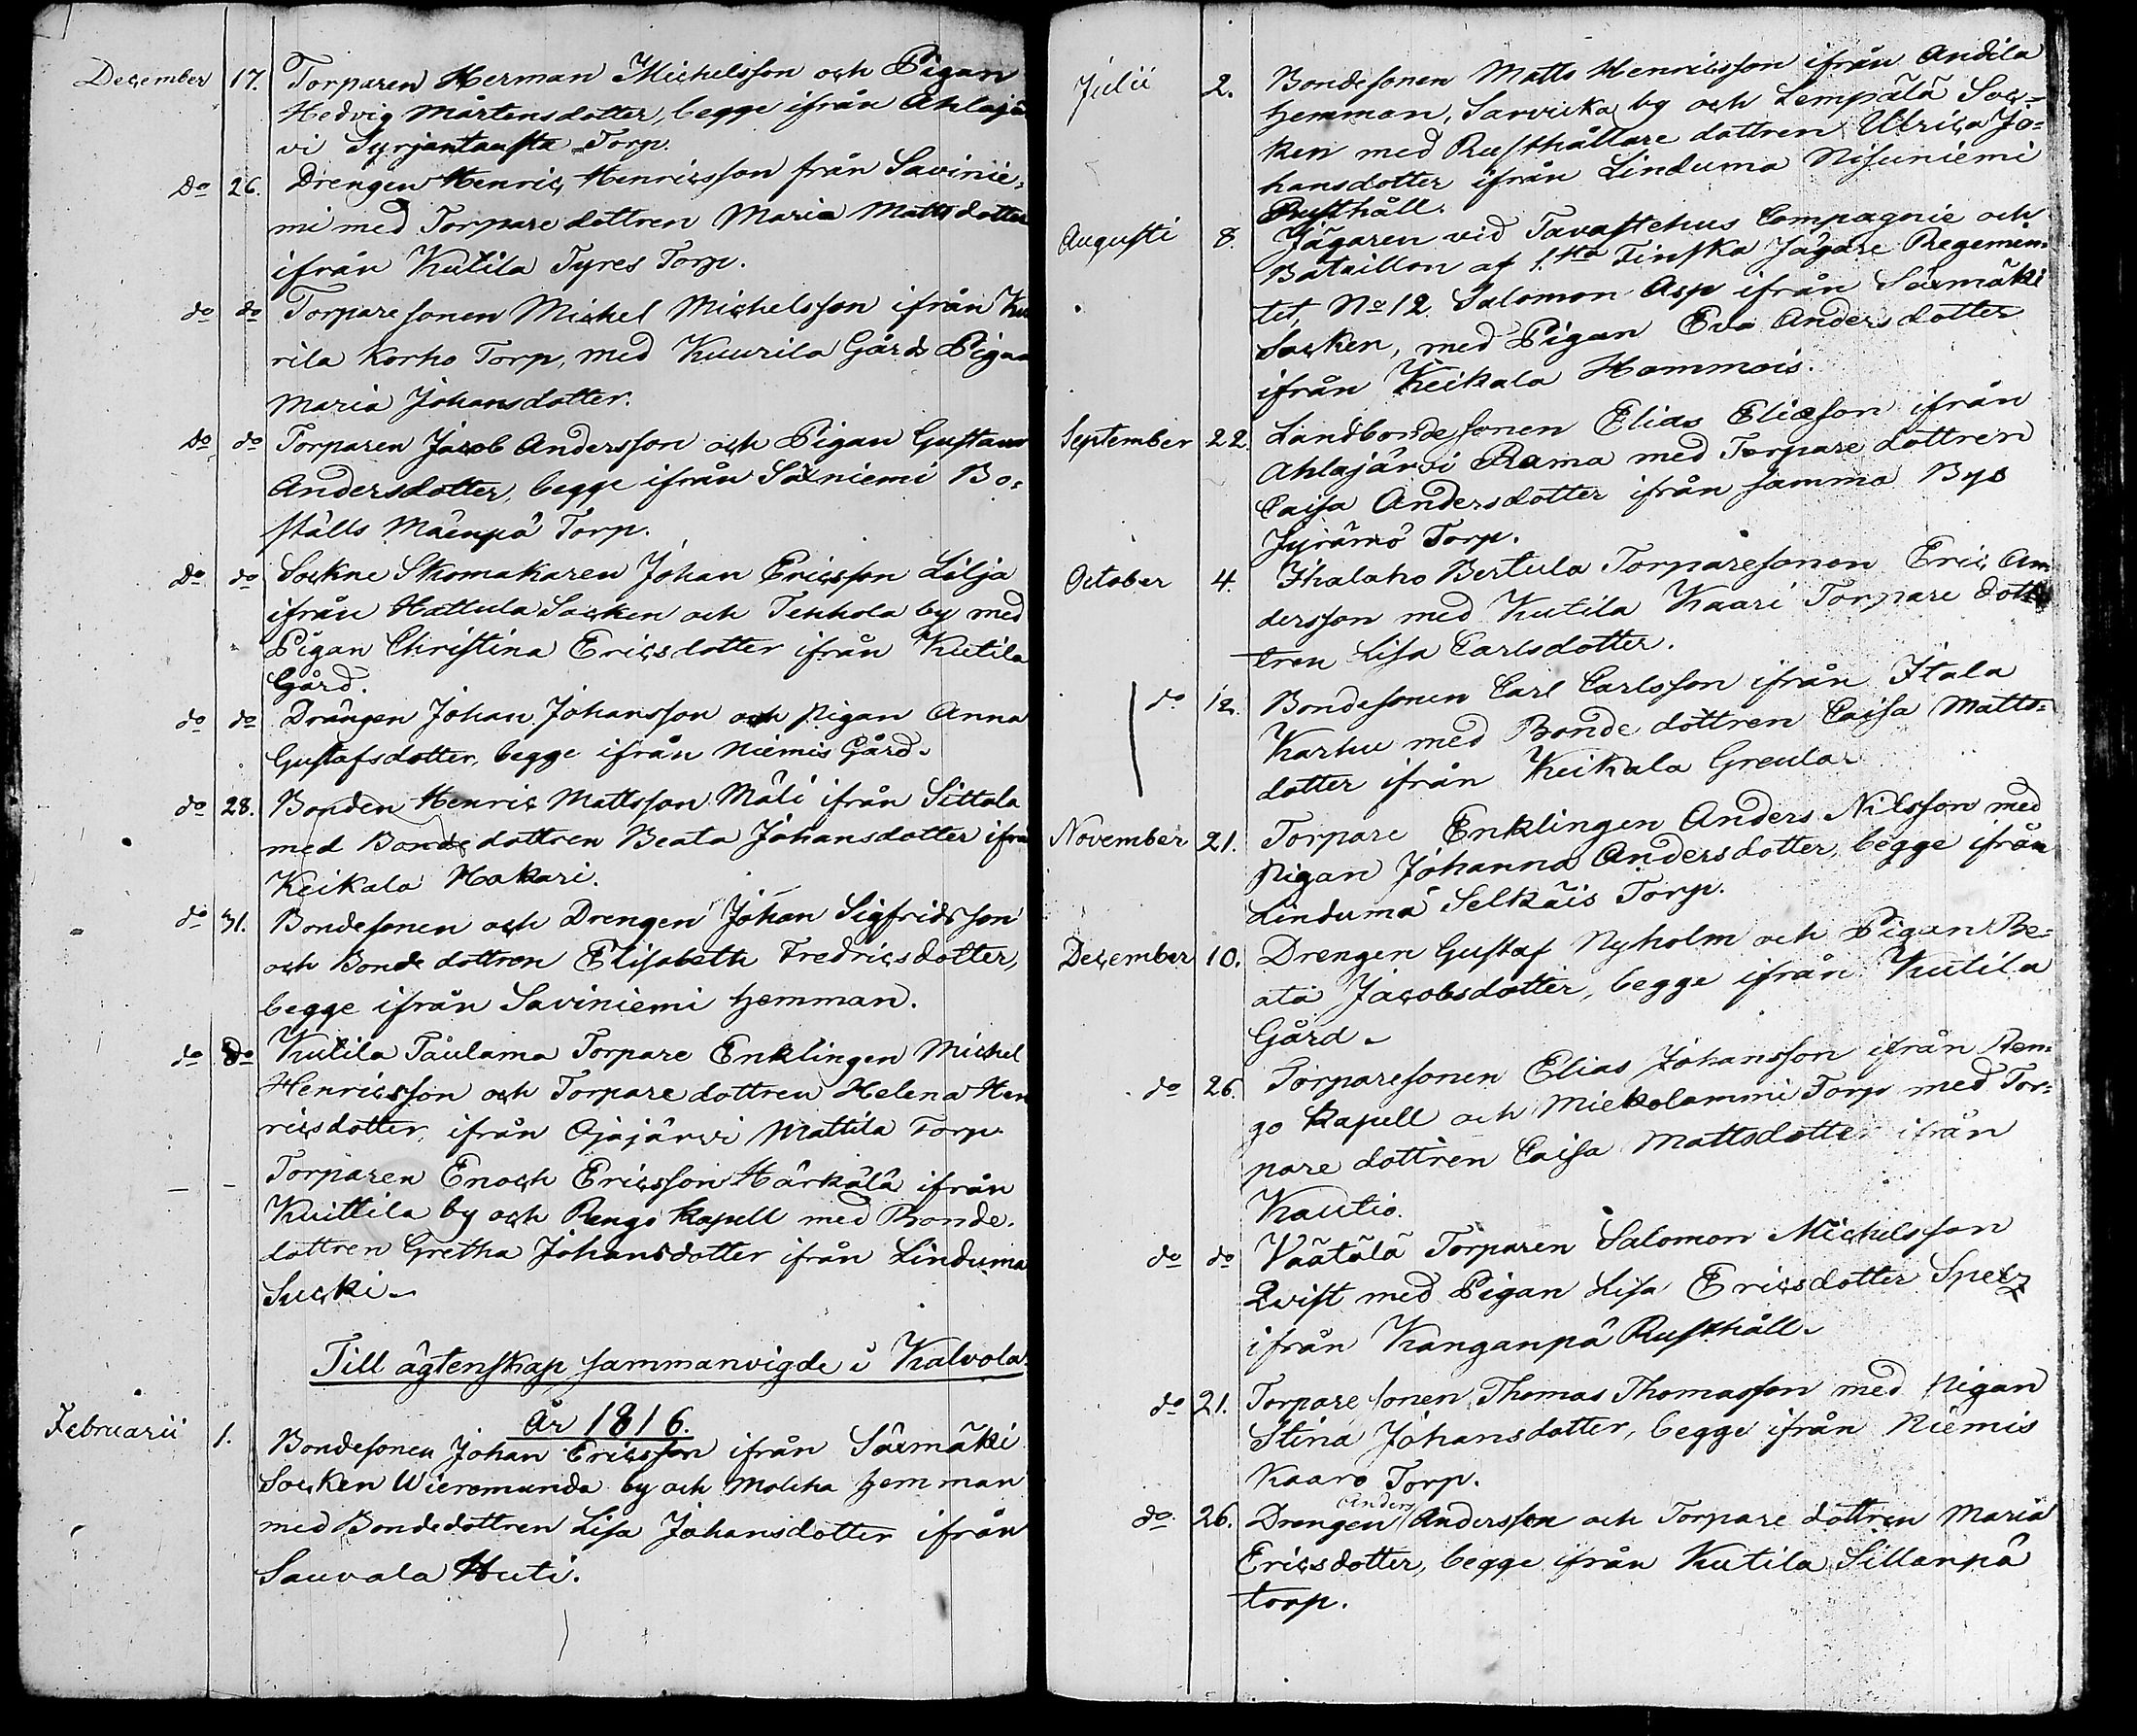 December 17. Torparen Herman Michelsson och Pigan
Hedvig Mårtensdotter, begge ifrån Ahlajär
vi Syrjäntausta Torp.
do 26. Drengen Henric Henricsson från Savinie=
mi med Torpare dottren Maria Mattsdotter
ifrån Kutila Tyres Torp.
do do Torpare sonen Michel Michelsson ifrån Ku
rila Korho Torp, med Kuurila Gårds Pigan
Maria Johansdotter.
do do Torparen Jacob Andersson och Pigan Gustava
Andersdotter, begge ifrån Säxniemi Bo=
ställs Mäenpä Torp.
do do Sockne Skomakaren Johan Ericsson Lilja
ifrån Hattula Socken och Tenhola by med
Pigan Christina Ericsdotter ifrån Kutila
Gård.
do do Drängen Johan Johansson och pigan Anna
Gustafsdotter, begge ifrån Niemis Gård.
do 28. Bonden Henric Mattsson Mäli ifrån Sittala
med Bonde dottren Beata Johansdotter ifrå
Keikala Hakari.
do 31. Bondesonen och Drengen Johan Sigfridsson
och Bonde dottren Elisabeth Fredricsdotter,
begge ifrån Saviniemi hemman.
do do Kutila Taulama Torpare Enklingen Michel
Henricsson och Torpare dottren Helena Hen
ricsdotter, ifrån Ojajärvi Mattila Torp.
Torparen Enoch Ericsson Härkälä ifrån
Kuittila by och Rengo Kapell med Bonde.
dottren Gretha Johansdotter ifrån Linduma
Sucki.
Till ägtenskap sammanvigde i Kalvola
År 1816.
Februarii 1. Bondesonen Johan Ericsson ifrån Säxmäki
Socken Wieromunda by och Molcha hemman
med Bondedottren Lisa Johansdotter ifrån
Sauvala Huti.
Julii 2. Bondesonen Matts Henricsson ifrån Andila
hemman, Sarvicka by och Lempälä Soc=
ken med Rusthållare dottren Ulrica Jo=
hansdotter ifrån Linduma Nisuniemi
Rusthåll.
Augusti 8. Jägaren vid Tavastehus Compagnie och
Bataillon af 1.sta Finska Jägare Regemen=
tet, No 12. Salomon Asp ifrån Säxmäki
Socken, med Pigan Eva Andersdotter
ifrån Keikala Hommais.
September 22. Landbondesonen Elias Eliæson ifrån
Ahlajärvi Rama med Torpare dottren
Caisa Andersdotter ifrån samma Bys
Jyrämö Torp.
October 4. Ihalaho Bertula Torparesonen Eric An
dersson med Kutila Kaari Torpare dott
tren Lisa Carlsdotter.
do 12. Bondesonen Carl Carlsson ifrån Itala
Karhu med Bonde dottren Caisa Matts=
dotter ifrån Keikala Greula.
November 21. Torpare Enklingen Anders Nilsson med
pigan Johanna Andersdotter, begge ifrån
Linduma Selkäis Torp.
December 10. Drengen Gustaf Nyholm och Pigan Be=
ata Jacobsdotter, begge ifrån Kutila
Gård.
do 26. Torparesonen Elias Johansson ifrån Ren=
go Kapell och Miekolammi Torp med Tor=
pare dottren Caisa Mattsdotter ifrån
Kautio.
do do Väätälä Torparen Salomon Michelsson
Qvist med Pigan Lisa Ericsdotter Spetz
ifrån Kanganpä Rusthåll.
do 21. Torpare sonen Thomas Thomasson med pigan
Stina Johansdotter, begge ifrån Niemis
Kaaro Torp.
do 26. Drengen Anders Andersson och Torpare dottren Maria
Ericsdotter, begge ifrån Kutila Sillanpä
torp.